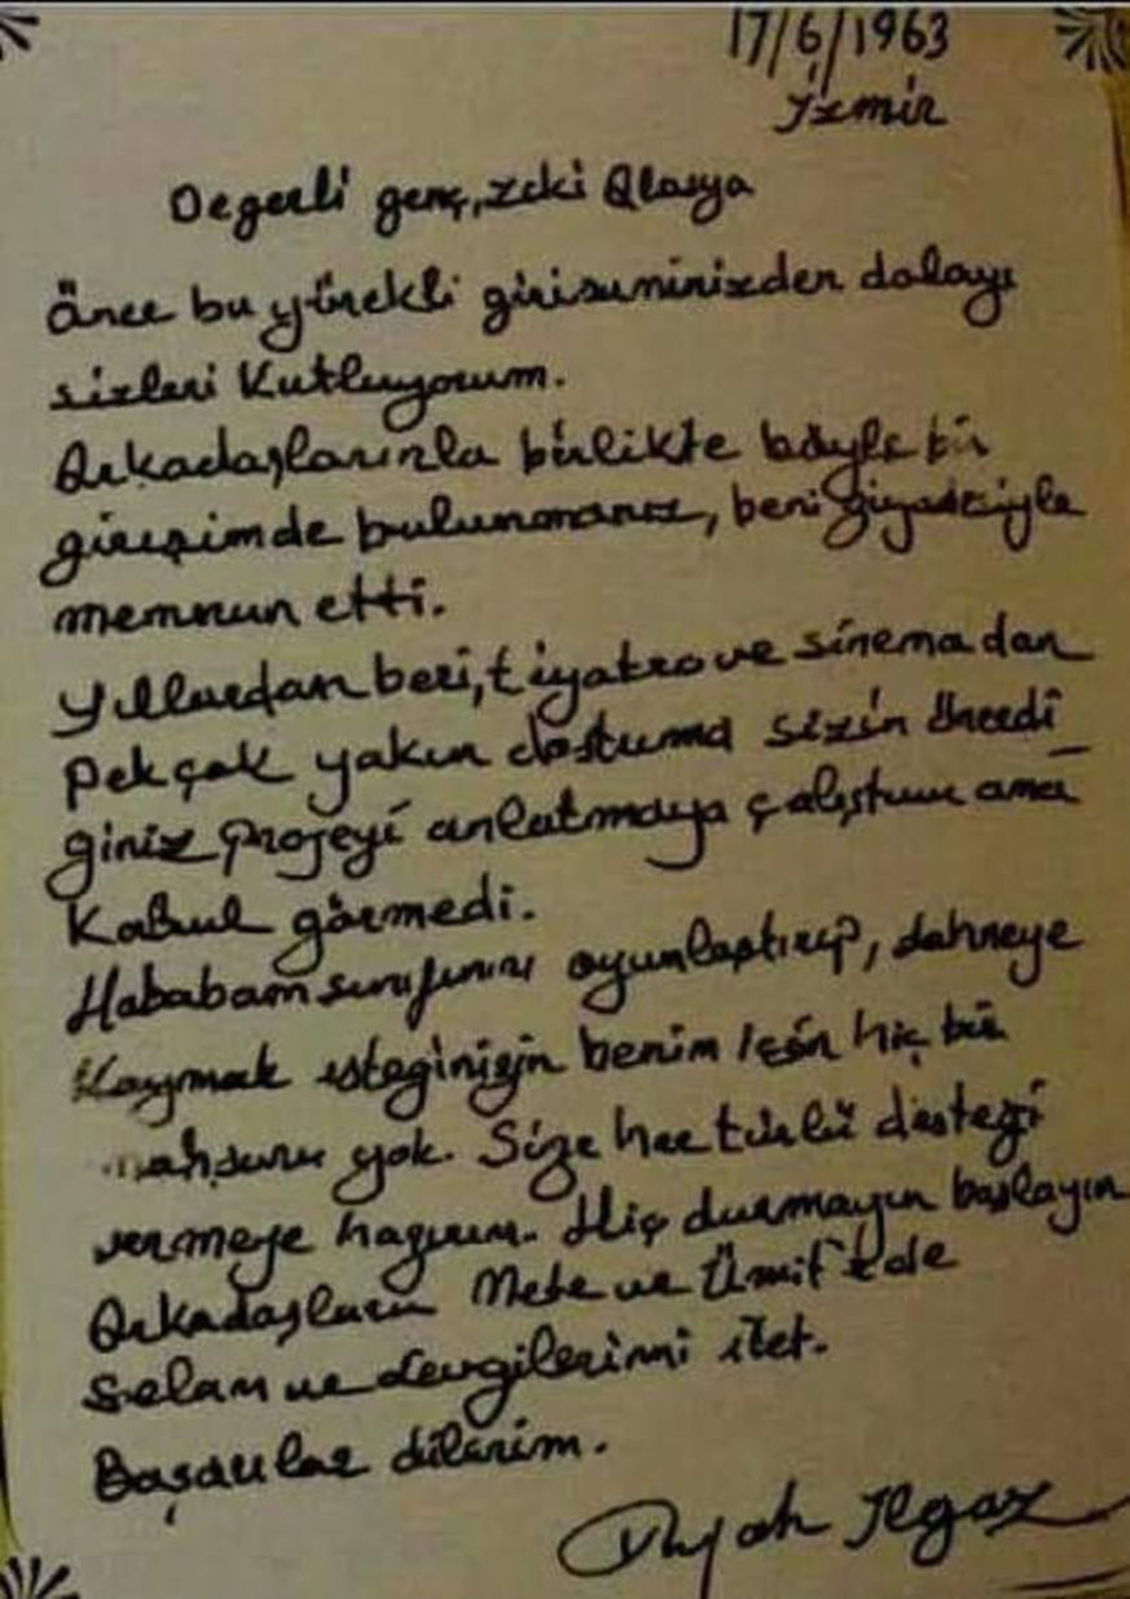 17/6/1963
İzmir
Degerli genç, zeki Alasya
Önce bu yürekli girisiminizden dolayı
sizleri kutluyorum.
Arkadaşlarınla birlikte böyle bir
girişimde bulunmanız, beni ziyadesiyle
memnun etti.
Yıllardan beri, tiyatro ve sinemadan
pek çok yakın dostuma sizin önerdi
giniz projeyi anlatmaya çalıştım ama
kabul görmedi.
Hababam sınıfının oyunlaştırıp, sahneye
Koymak isteginizin benim için hiç bir
mahsuru yok. Size her türlü desteği
vermeye hazırım. Hiç durmayın başlayın
Arkadaşların Mete ve Ümit'e de
selam ve sevgilerimi ilet.
Başarılar dilerim.
Rıfat Ilgaz